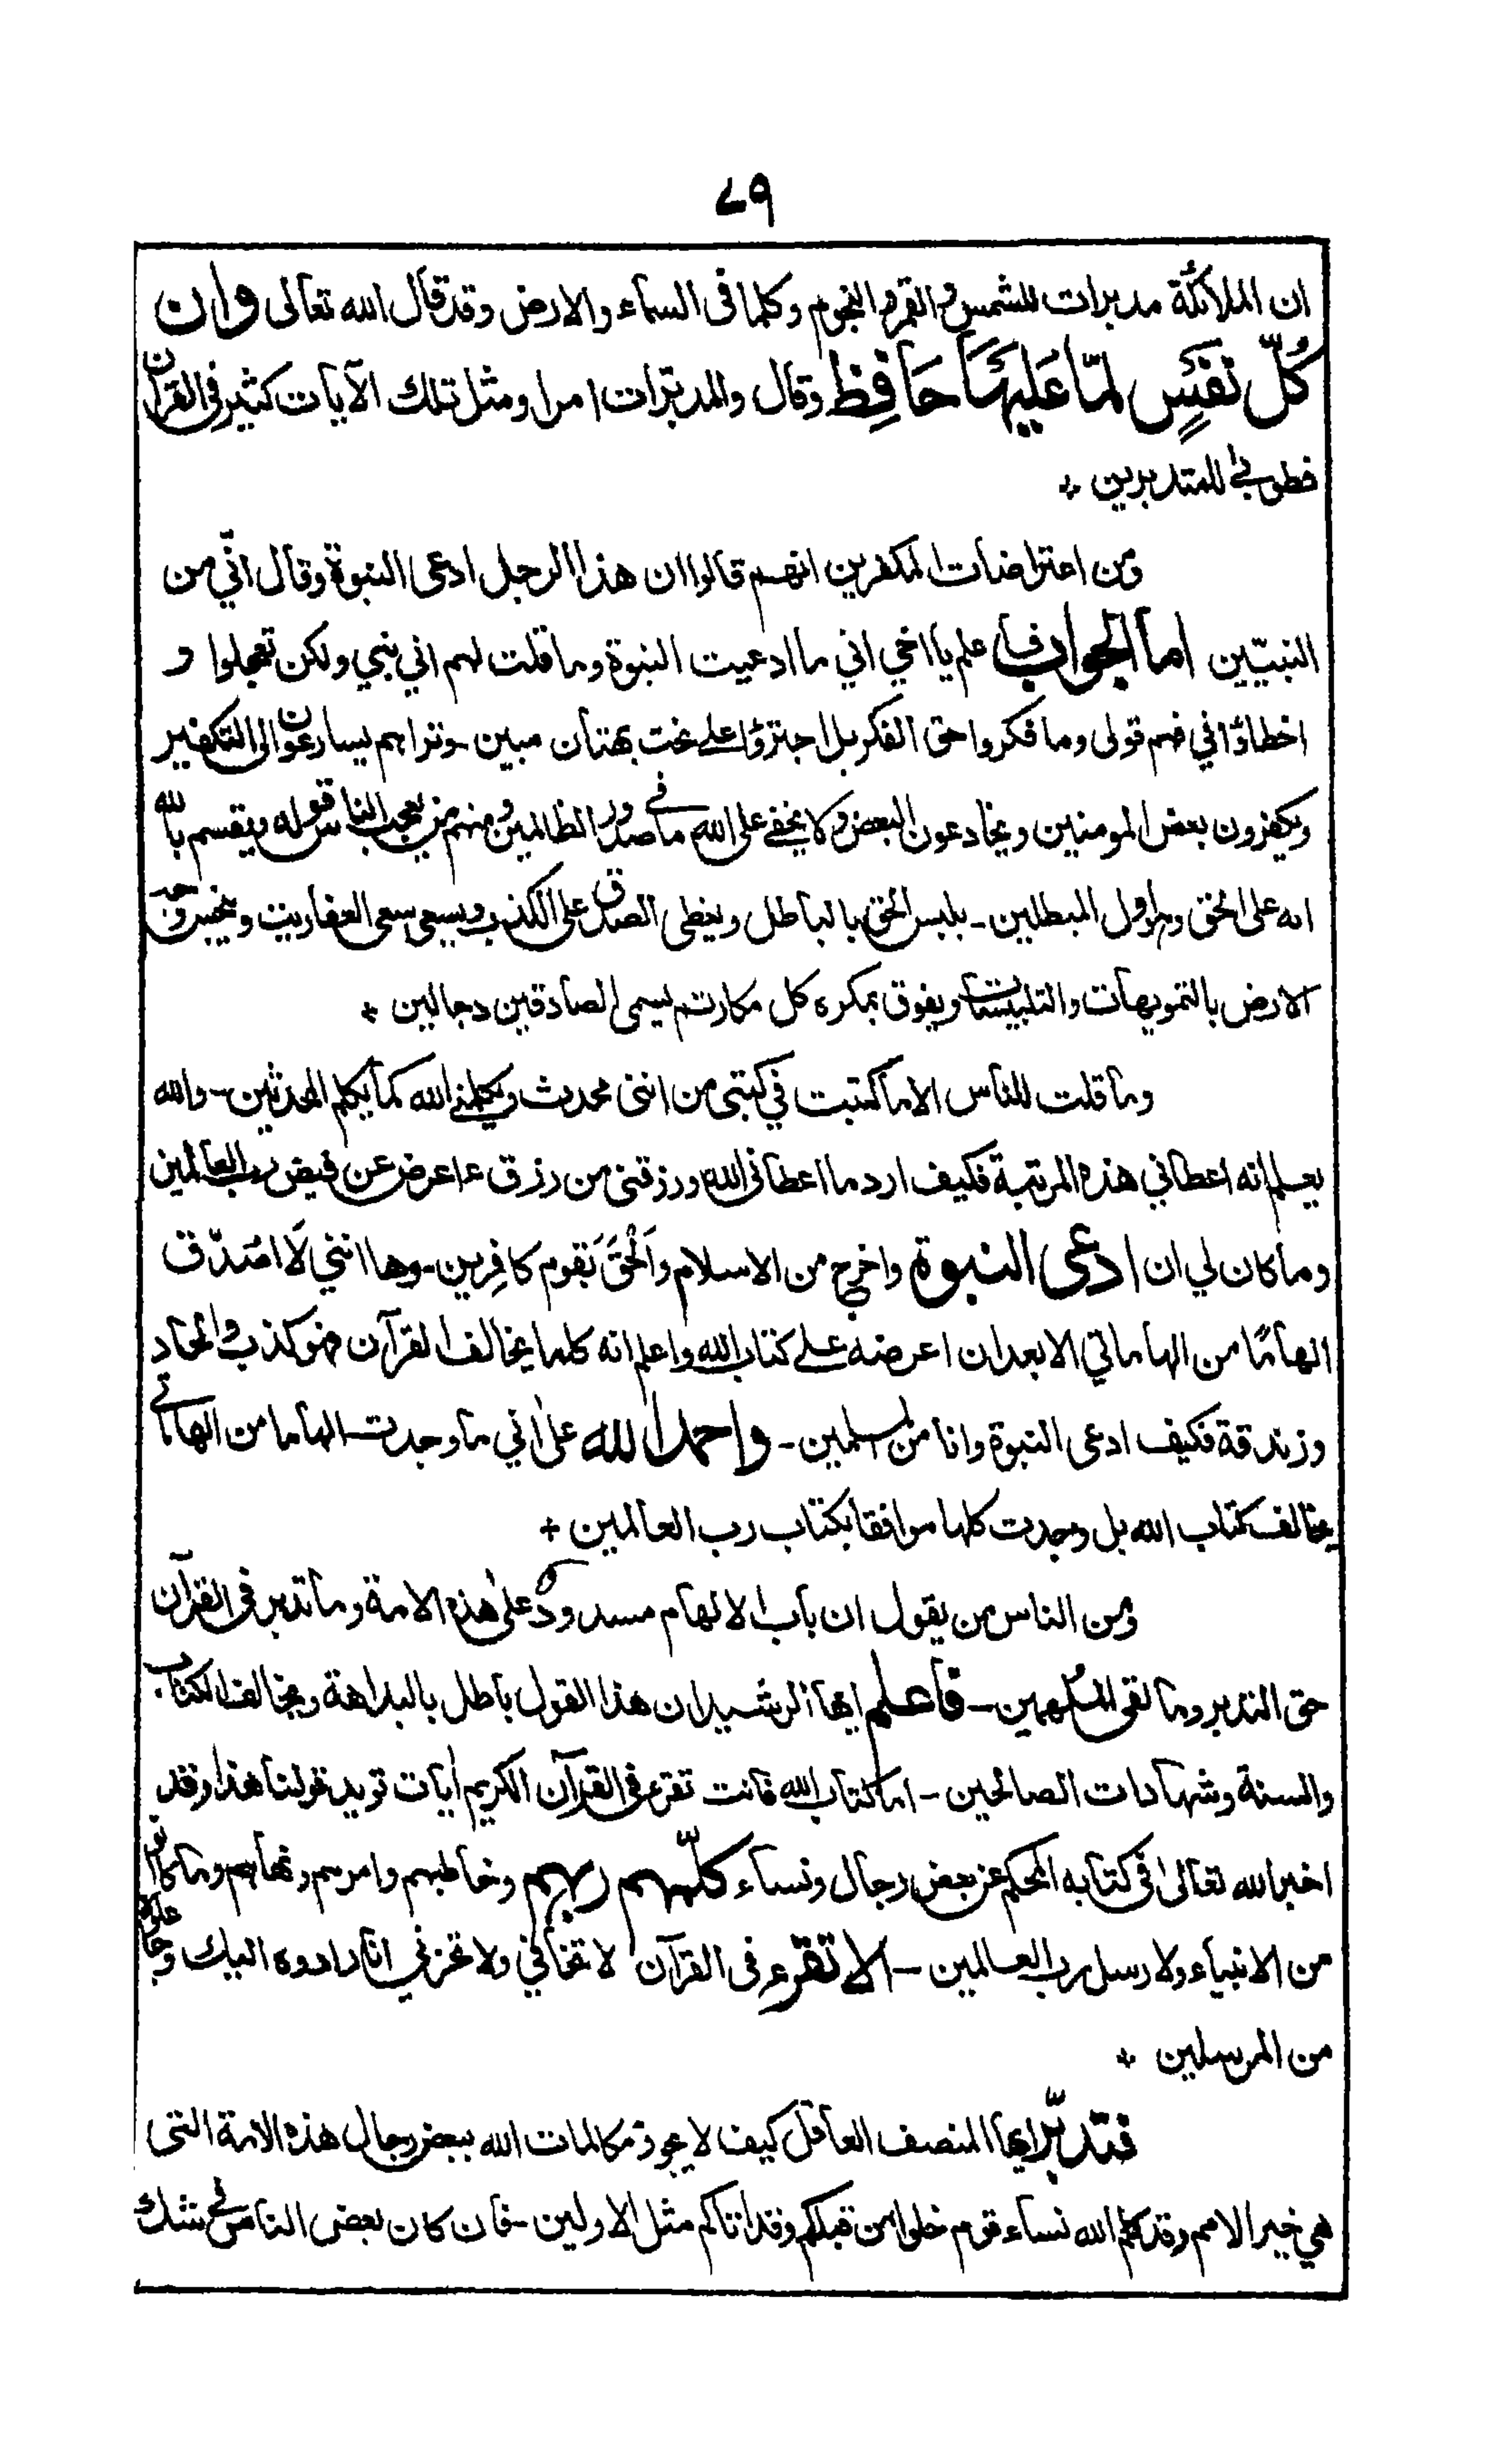 ۷۹
ان الملائكة مدبرات للشمس والقمر والنجوم وكلما فى السماء والارض وقد قال الله تعالى وان
كُلّ نفسٍ لمّا عَليهَا حَافِظ وقال والمدبّرات امرا ومثل تلك الآيات كثير فى القرآن
فطوبى للمتدبرين +
ومن اعتراضات المكفرين انهم قالوا ان هذا الرجل ادعى النبوة وقال انّي من
النبيّين اما الجواب فاعلم يا اخي اني ما ادعيت النبوة وما قلت لهم اني نبي ولكن تعجلوا و
اخطاؤا في فهم قولى وما فكروا حق الفكر بل اجترؤا على نحت بهتان مبين - وتراهم يسارعون الى التكفير
ويكفرون بعض المومنين ويخادعون البعض ولا يخفى على الله ما فى صدور الظالمين ومنهم من يعجب الناس قوله ويقسم بالله
انه على الحق وهو اول المبطلين - يلبس الحق بالباطل ويغطى الصدق على الكذب ويسعى سعى العفاريت وينجس وجه
الارض بالتمويهات والتلبيسات ويفوق بمكره كل مكار ثم يسمى الصادقين دجالين +
وما قلت للناس الا ما كتبت في كتبى من اننى محدث ويكلمنى الله كما يكلم المحدثين - والله
يعلم انه اعطاني هذه المرتبة فكيف ارد ما اعطانى الله ورزقنى من رزق ءاعرض عن فيض رب العالمين
وما كان لي ان ادعى النبوة واخرج من الاسلام وَاَلْحَقَ بقوم كافِرين - وها انني لَا اصَدّق
الهامًا من الهاماتي الا بعد ان اعرضه على كتاب الله واعلم انه كلما يخالف القرآن فهو كذب والحاد
وزندقة فكيف ادعى النبوة وانا من المسلمين - واحمد الله على اني ما وجدت الهاما من الهاماتى
يخالف كتاب الله بل وجدت كلها موافقا بكتاب رب العالمين +
ومن الناس من يقول ان باب الالهام مسدود على هذه الامة وما تدبر فى القرآن
حق التدبر وما لقى الملهمين - فاعلم ايها الرشيد ان هذا القول باطل بالبداهة ويخالف الكتاب
والسنة وشهادات الصالحين - اما كتاب الله فانت تقرء فى القرآن الكريم ايات تويد قولنا هذا وقد
اخبر الله تعالىٰ فى كتابه المحكم عن بعض رجال ونساء كلّمهم ربهم وخاطبهم وامرهم ونهاهم وما كانوا
من الانبياء ولا رسل رب العالمين - الا تقرء فى القرآن لا تخافي ولا تحزني انا رادوه اليك وجاعلوه
من المرسلين +
فتدبّر ايها المنصف العاقل كيف لا يجوز مكالمات الله ببعض رجال هذه الامة التى
هي خير الامم وقد كلم الله نساء قوم خلوا من قبلكم وقد اتاكم مثل الاولين - فان كان بعض الناس فى شك